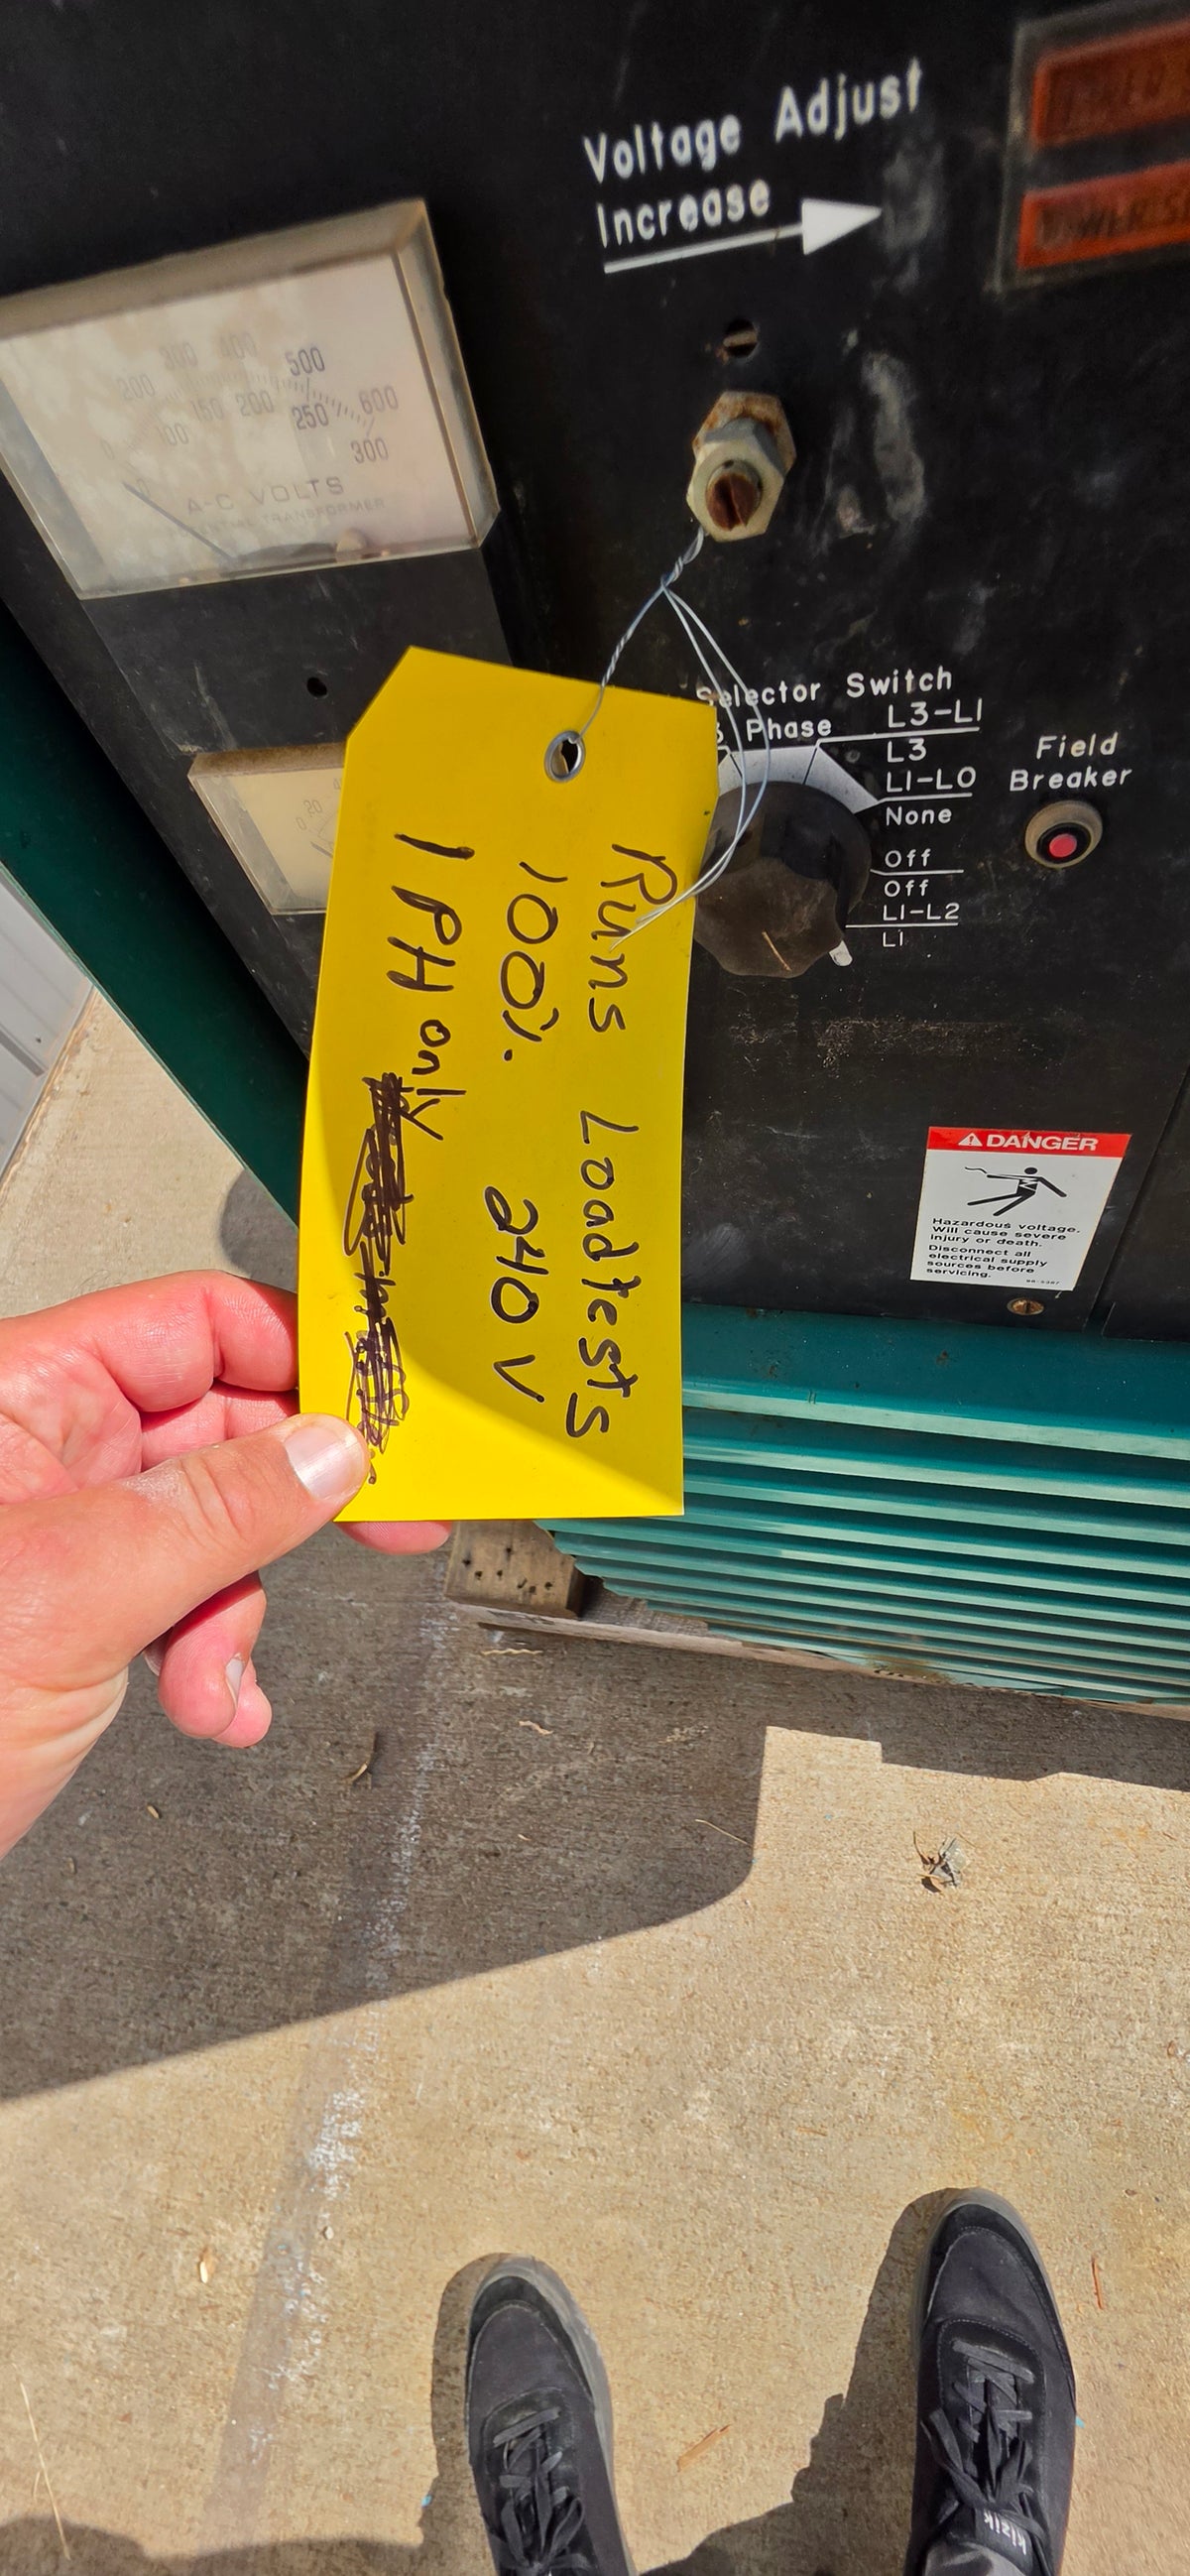 Voltage Adjust
Increase
200 300 400 500 600
0 100 150 200 250 300
0
A-C VOLTS
TRANSFORMER
0 20
Selector Switch
3 Phase
L3-L1
L3
L1-L0
None
Off
Off
L1-L2
L1
Field
Breaker
Runs Loadtests
100%. 240 V
1 PH only
DANGER
Hazardous voltage.
Will cause severe
injury or death.
Disconnect all
electrical supply
sources before
servicing.
kizik